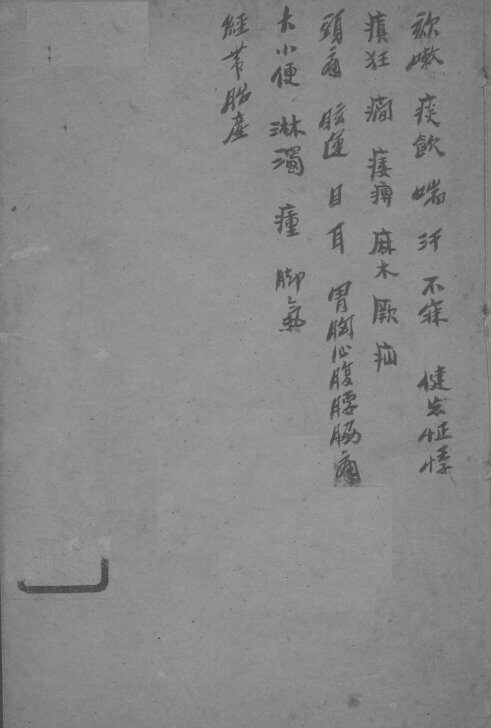 欬嗽 痰飲 喘 汗 不寐 健忘怔悸
癲狂 癇 痿痹 麻木 厥 疝
頭痛 眩運 目 耳 胃胸心腹腰脇痛
大小便 淋濁 瘇 脚氣
經帶胎產